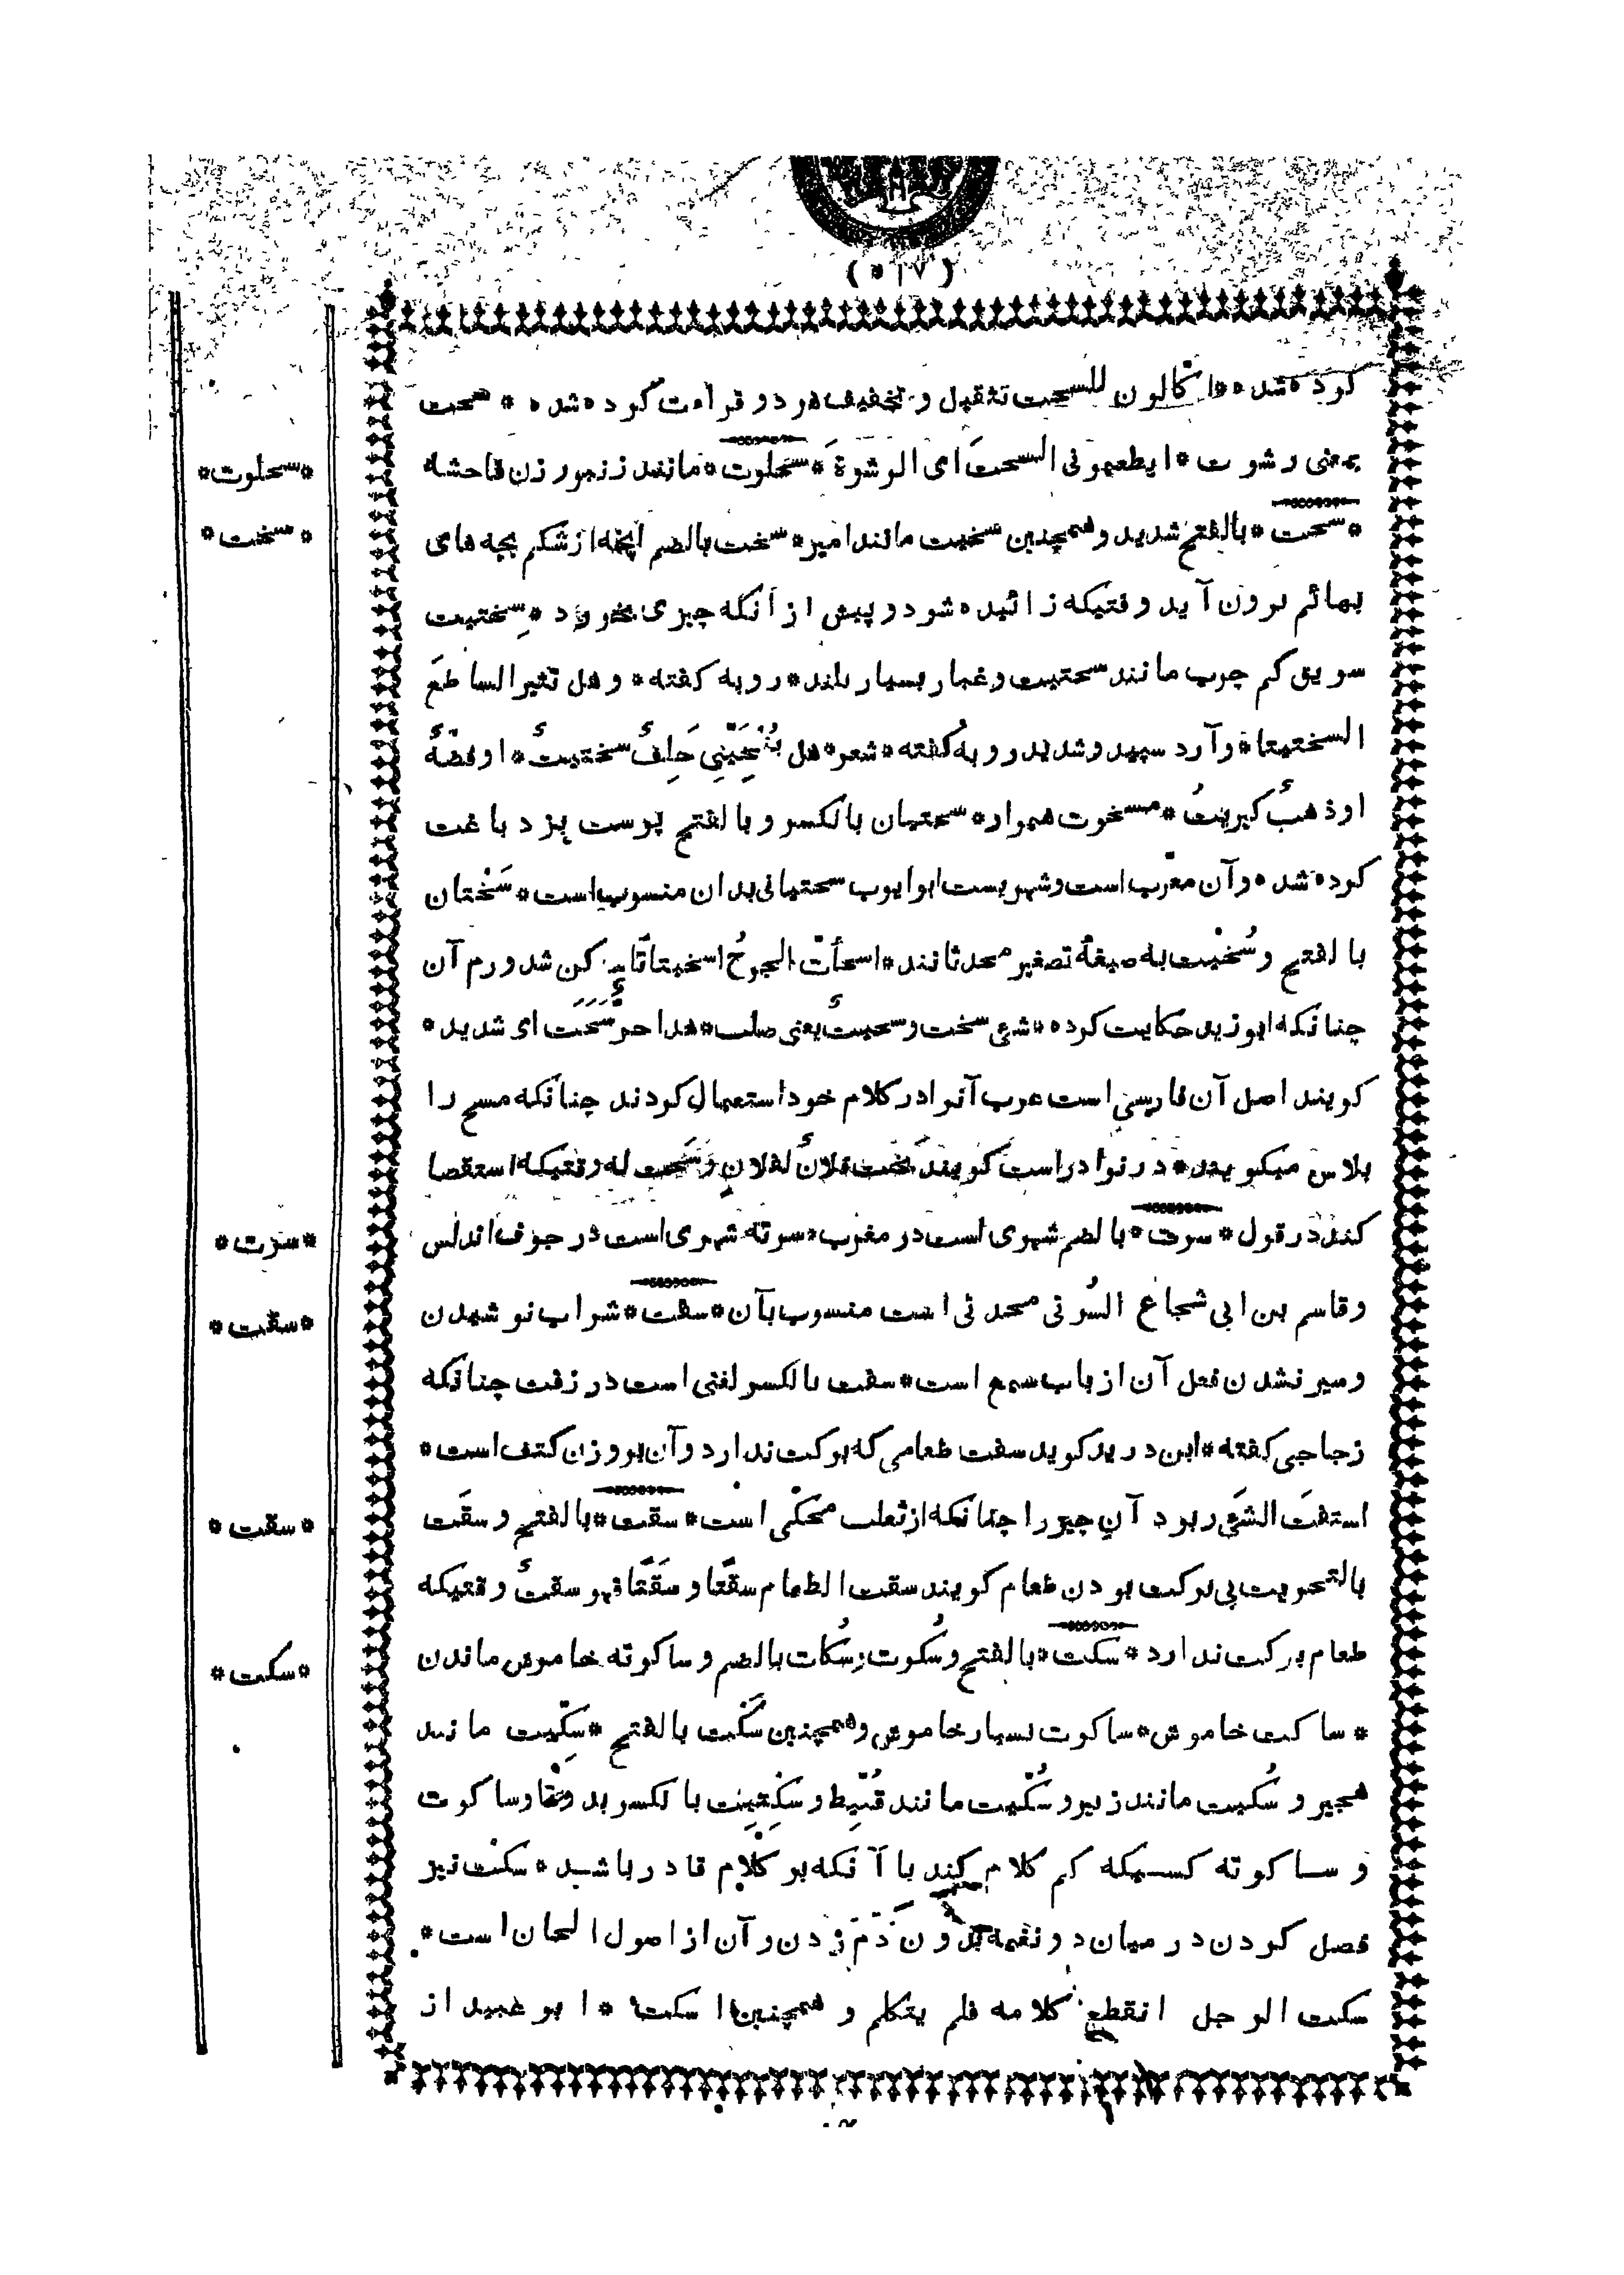 (۵۱۷)
کرده شده * اکالون للسحت تثقیل و تخفیف هر دو قراءت کرده شده * سحت
بمعنی رشوت * ایطعمونی السحتَ ای الرشوةَ * سحلوت * مانند زنبور زن فاحشه
*سحلوت*
* سخت * بالفتح شدید و همچنین سخیت مانند امیر * سخت بالضم آنچه از شکم بچه های
*سخت*
بهائم برون آید وقتیکه زائیده شود و پیش از آنکه چیزی بخورد * سِختیت
سویق کم چرب مانند سحتیت و غبار بسیار بلند * روبه گفته * و هل تثیر الساطعَ
السختیتا * و آرد سپید و شدید روبه گفته * شعر * هل یُنْجِیَنّی حَلِفٌ سختیتٌ * او فضّةٌ
او ذهبٌ کبریتُ * مسخوت هموار * سختیان بالکسر و بالفتح پوست بز دباغت
کرده شده و آن معرّب است و شهریست ابو ایوب سختیانی بدان منسوب است * سَخْتان
بالفتح و سُخَیت به صیغهٔ تصغیر محدثانند * اسخأتّ الجرحُ اسخیتاتًا کن شد ورم آن
چنانکه ابوزید حکایت کرده * شیٌ سخت و سخیتٌ یعنی صلب * هذا حرٌّ سَخت ای شدید *
گویند اصل آن فارسی است عرب آنرا در کلام خود استعمال کردند چنانکه مسح را
بلاس میگویند * در نوادر است گویند نخت فلانٌ لفلانٍ و سَخت له وقتیکه استقصا
کند در قول * سرت * بالضم شهری است در مغرب * سرته شهری است در جوف اندلس
*سرت*
و قاسم بن ابی شجاع السُرتی محدثی است منسوب بآن * سفت * شراب نوشیدن
*سفت*
و سیر نشدن فعل آن از باب سمع است * سفت بالکسر لغتی است در زفت چنانکه
زجاجی گفته * ابن درید گوید سفت طعامی که برکت ندارد و آن بر وزن کتف است *
استفتَ الشیَ ربود آن چیز را چنانکه از ثعلب محکّی است * سقت * بالفتح و سقَت
*سقت*
بالتحریک بی برکت بودن طعام گویند سقت الطعام سقْتًا و سقَتًا فهو سقتٌ وقتیکه
طعام برکت ندارد * سکت * بالفتح و سُکوت و سُکات بالضم و ساکوته خاموش ماندن
*سکت*
* ساکت خاموش * ساکوت بسیار خاموش و همچنین سَکْت بالفتح * سِکّیت مانند
هجیر و سُکیت مانند زبیر و سُکّیت مانند قُبّیط و سِکْتِیت بالکسر بد و تا و ساکوت
و ساکوته کسیکه کم کلام کند با آنکه بر کلام قادر باشد * سکت نیز
فصل کردن در میان دو نغمه بدون دَم زدن و آن از اصول الحان است *
سکت الرجل انقطع کلامه فلم یتکلم و همچنین اسکت * ابو عبید از